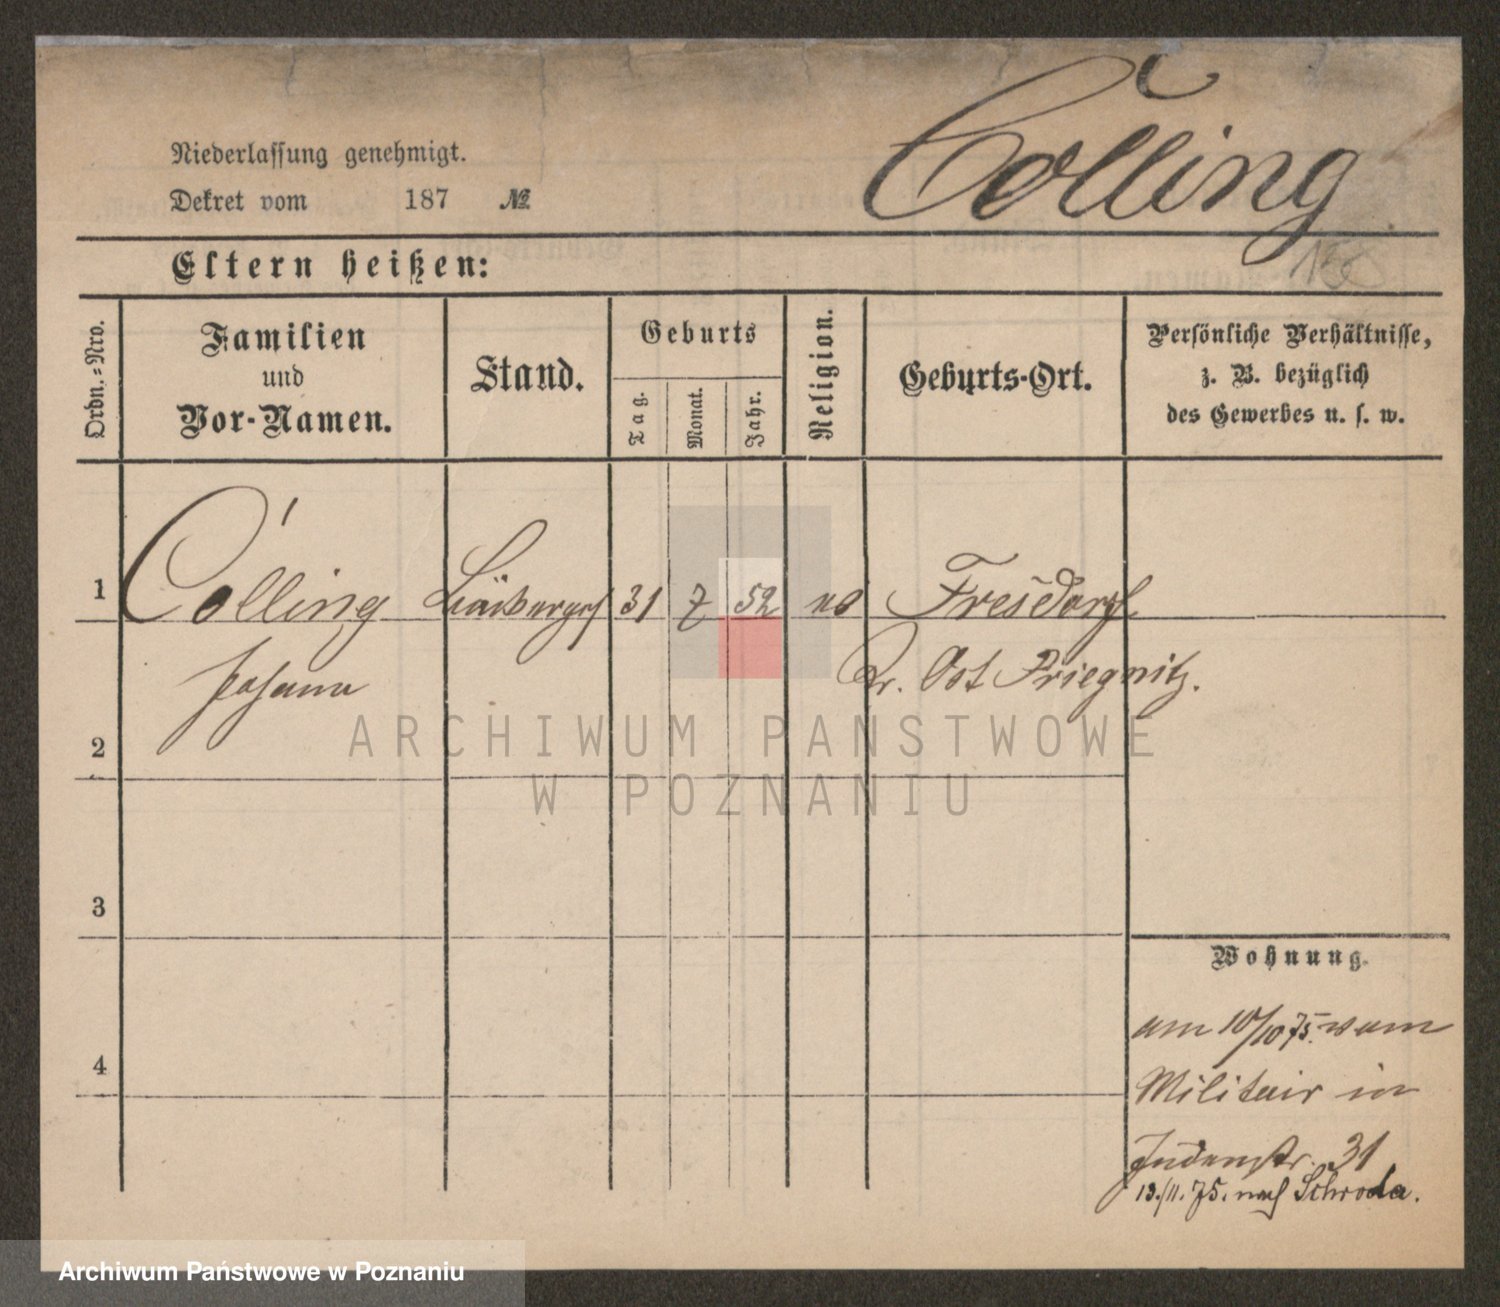 Colling
Niederlassung genehmigt.
Dekret vom 187 №
158
Eltern heißen:
Ordn.=Nro.
Familien
und
Vor-Namen.
Stand.
Geburts
Tag.
Monat.
Jahr.
Religion.
Geburts-Ort.
Persönliche Verhältnisse,
z. B. bezüglich
des Gewerbes u. s. w.
1 Colling 31 7 52 Fresdorf
Johann Kr. Ost Priegnitz.
2
ARCHIWUM PAŃSTWOWE
W POZNANIU
3
Wohnung.
am 10/10 75. vom
4
Militair in
Judenstr. 31
13./11. 75. nach Schroda.
Archiwum Państwowe w Poznaniu